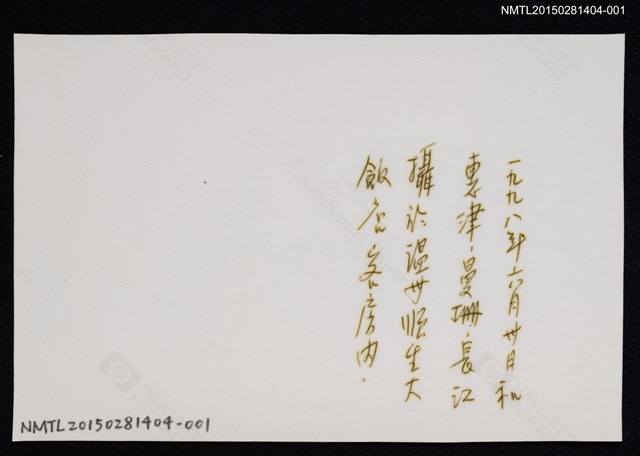 NMTL20150281404-001
一九九八年六月卅日和
惠津、曼珊、長江
攝於温州順生大
飯店客房内.
NMTL20150281404-001